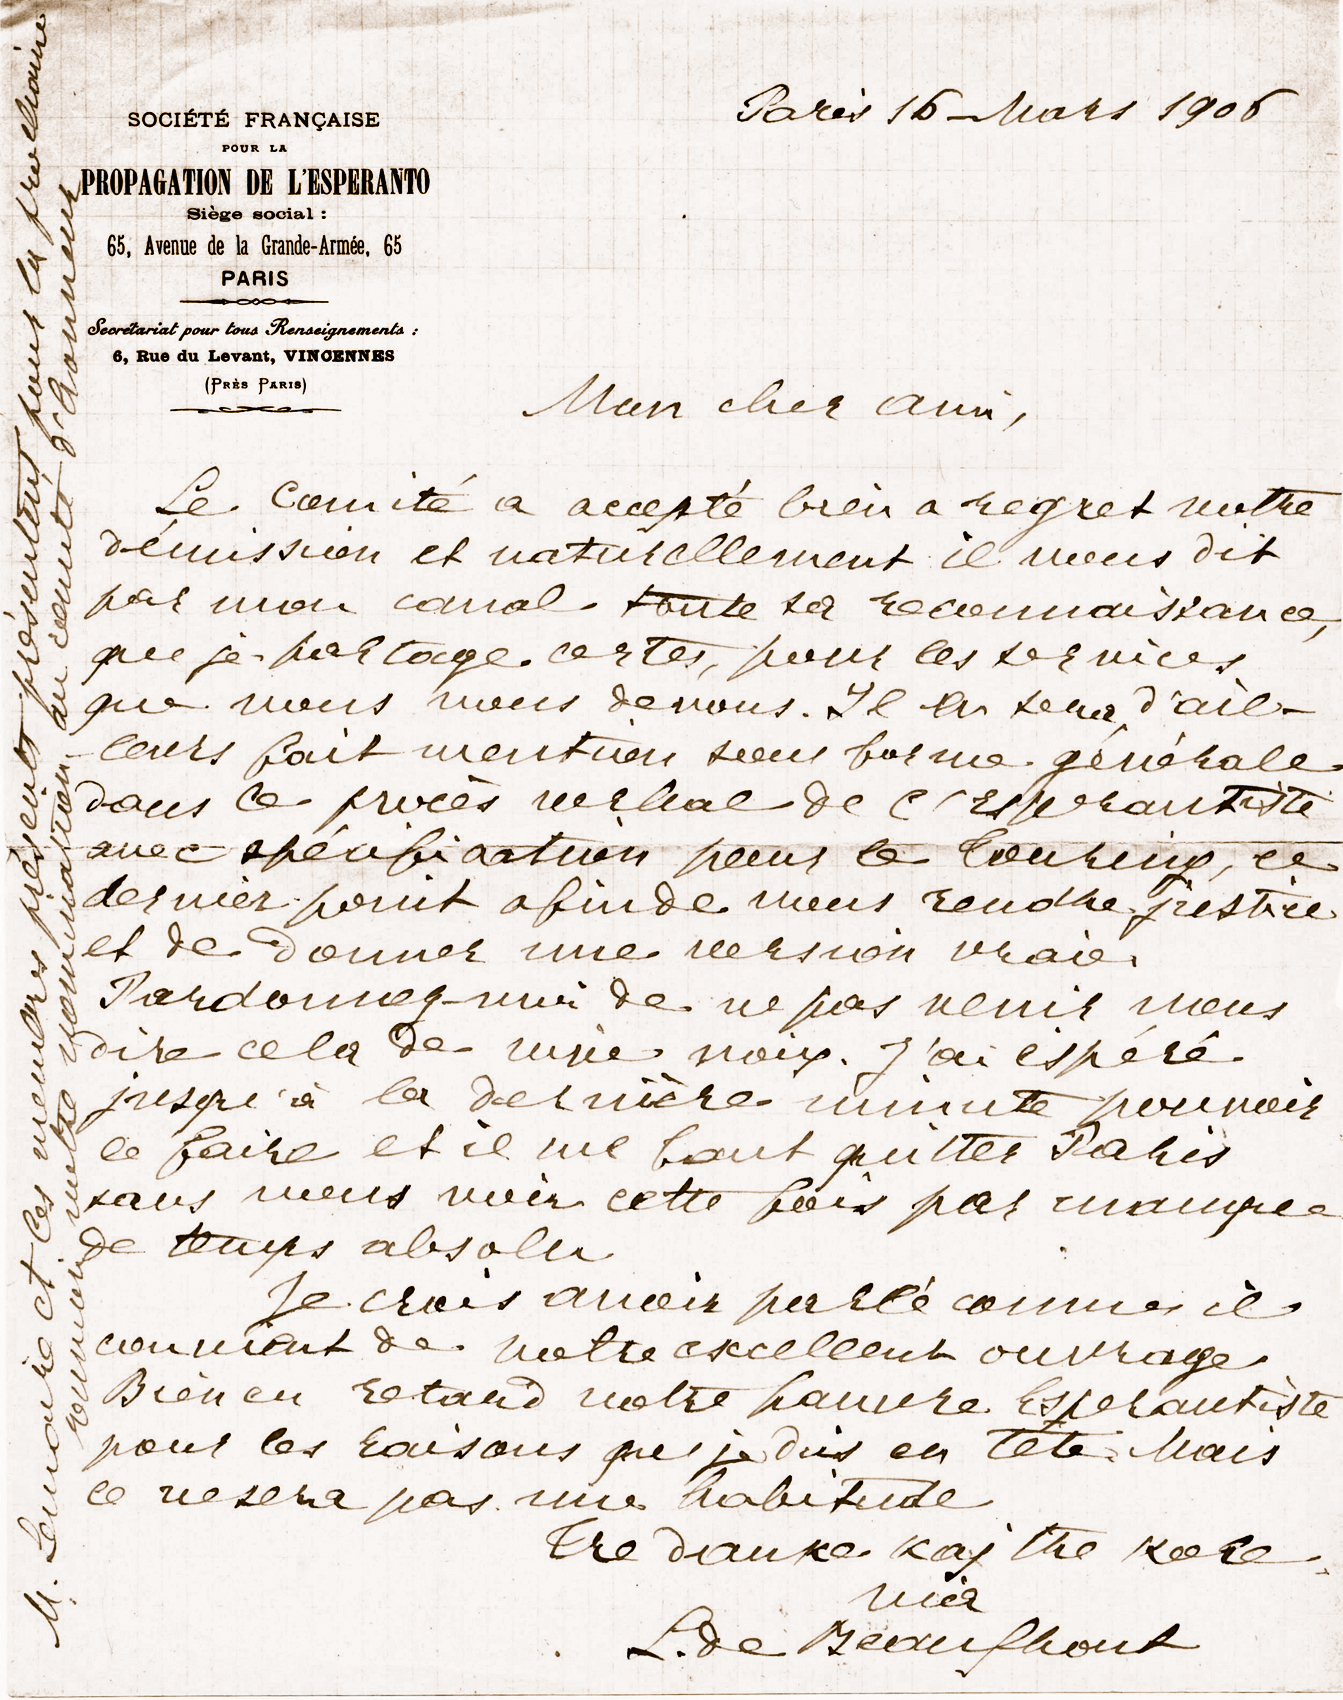 SOCIÉTÉ FRANÇAISE
POUR LA
PROPAGATION DE L'ESPERANTO
Siège social :
65, Avenue de la Grande-Armée, 65
PARIS
Secrétariat pour tous Renseignements :
6, Rue du Levant, VINCENNES
(PRÈS PARIS)
Paris 16 Mars 1906
Mon cher ami,
Le Comité a accepté bien a regret votre
démission et naturellement il vous dit
par mon canal toute sa reconnaissance,
que je partage certes, pour les services
que nous vous devons. Il en sera d'ail-
leurs fait mention sous forme générale
dans le procès verbal de l'Esperantiste
avec spécification pour le Touring, ce
dernier point afin de vous rendre justice
et de donner une version vraie.
Pardonnez-moi de ne pas venir vous
dire cela de vive voix. J'ai espéré
jusqu'à la dernière minute pouvoir
le faire et il me faut quitter Paris
sans vous voir cette fois par manque
de temps absolu
Je crois avoir parlé comme il
convient de votre excellent ouvrage
Bien en retard notre pauvre Esperantiste
pour les raisons que je dis en tête. Mais
ce ne sera pas une habitude
Tre danke kaj tre kore
via
L. de Beaufront
M. Lemaire et les membres présents présentent pour la prochaine
réunion votre nomination au comité d'honneur